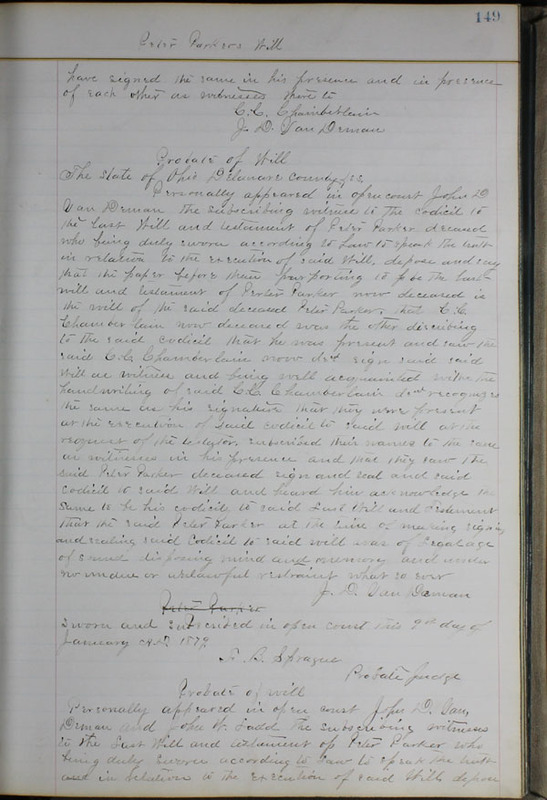 149
Peter Parkers Will
have signed the same in his presence and in presence
of each other as witnesses there to
C.C. Chamberlain
J. D. Van Deman
Probate of Will
The State of Ohio Delaware County ss
Personally appeared in open court John D
Van Deman the subscribing witness to the codicil to
the Last Will and testament of Peter Parker deceased
who being duly sworn according to Law to speak the truth
in relation to the execution of said Will, depose and say
that the paper before them purporting to be the last
will and testament of Peter Parker now deceased is
the will of the said deceased Peter Parker, that C.C.
Chamberlain now deceased was the other
to the said codicil that he was present and saw the
said C.C. Chamberlain now sign said said
Will as witness and being well acquainted with the
handwriting of said C.C. Chamberlain recognizes
the same as his signature that they were present
at the execution of said codicil to said will at the
request of the testator subscribed their names to the same
as witnesses in his presence and that they saw the
said Peter Parker deceased sign and seal and said
codicil to said Will and heard him acknowledge the
same to be his codicil to said Last Will and testament
that the said Peter Parker at the time of making signing
and sealing said codicil to said will was of Legal age
of sound disposing mind and memory and under
no undue or unlawful restraint what so ever
J. D. Van Deman
Peter Parker
Sworn and subscribed in open court this 9th day of
January A.D. 1879
Sprague
Probate Judge
Probate of will
Personally appeared in open court John D. Van
Deman and John W. Ladd the subscribing witnesses
to the Last Will and testament of Peter Parker who
being duly sworn according to Law to speak the truth
and in relation to the execution of said Will depose